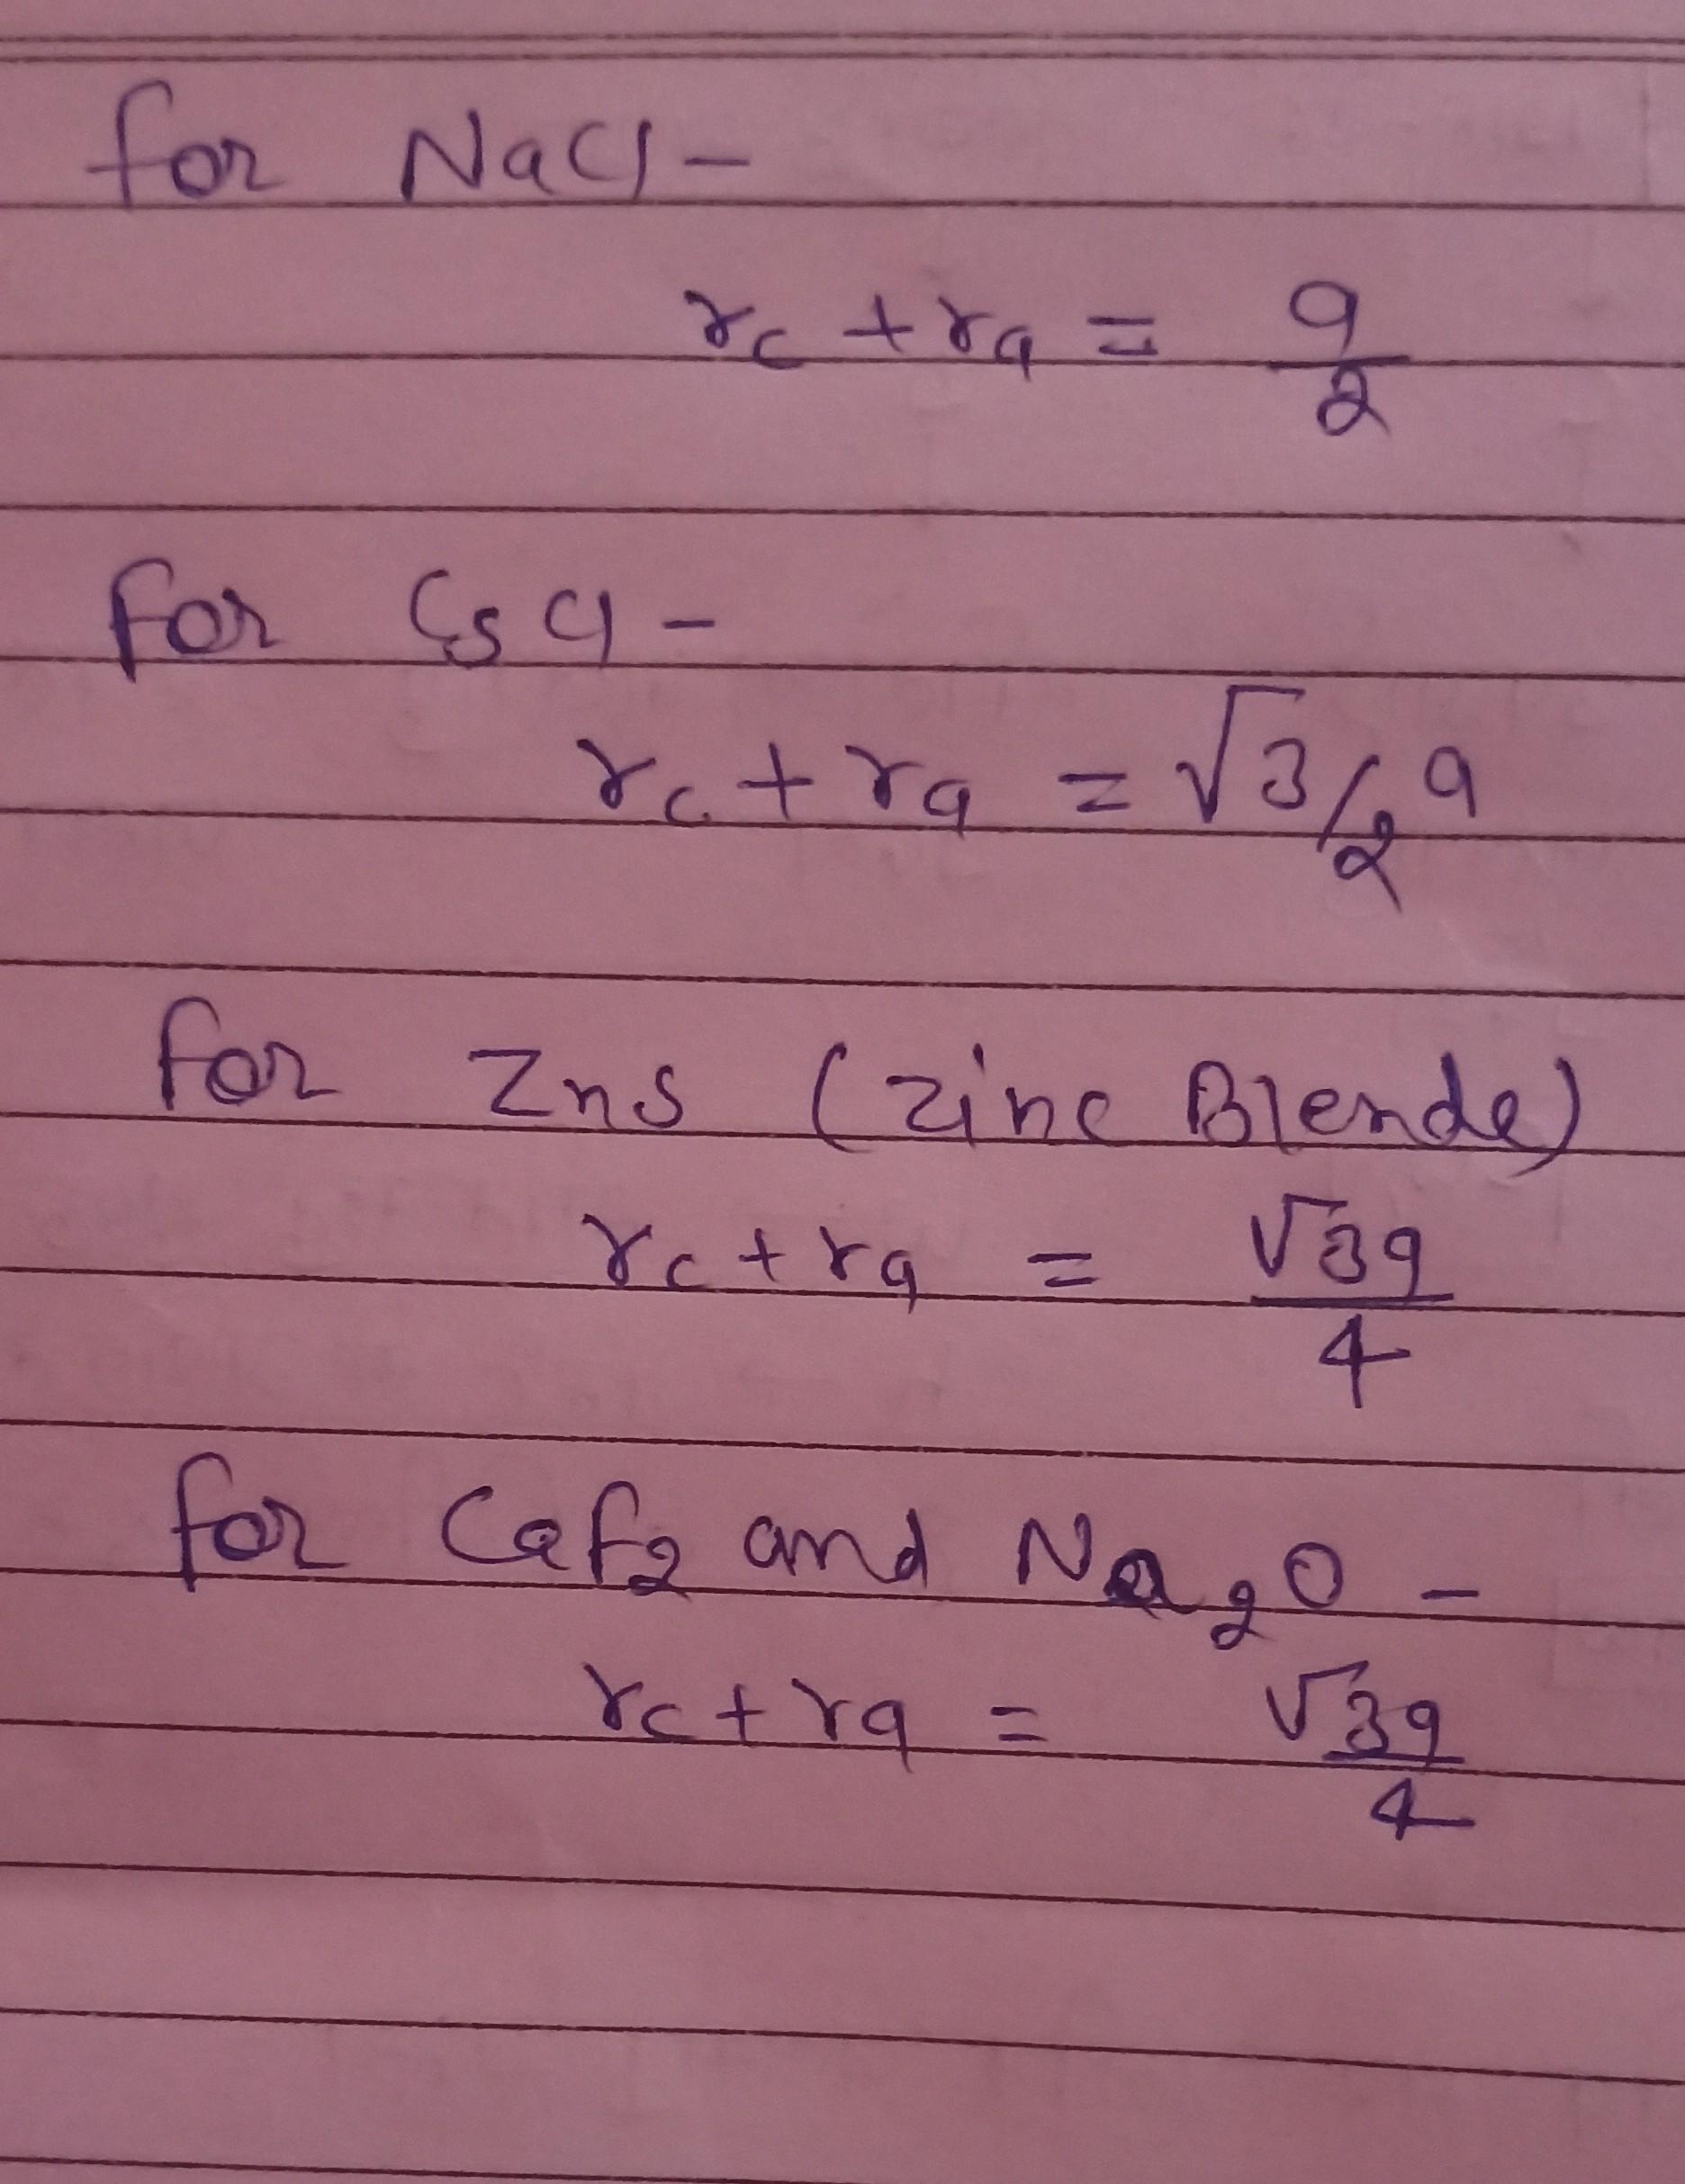 for NaCl -
rc + ra = a/2
for CsCl -
rc + ra = √3/2 a
for ZnS (Zinc Blende)
rc + ra = √3a/4
for CaF2 and Na2O -
rc + ra = √3a/4